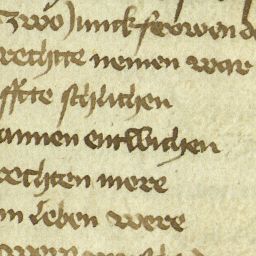 Zwo junckfrowen d
rechtte nemen war
fftte schlichen
annen entwichen
rechten mere
m leben were